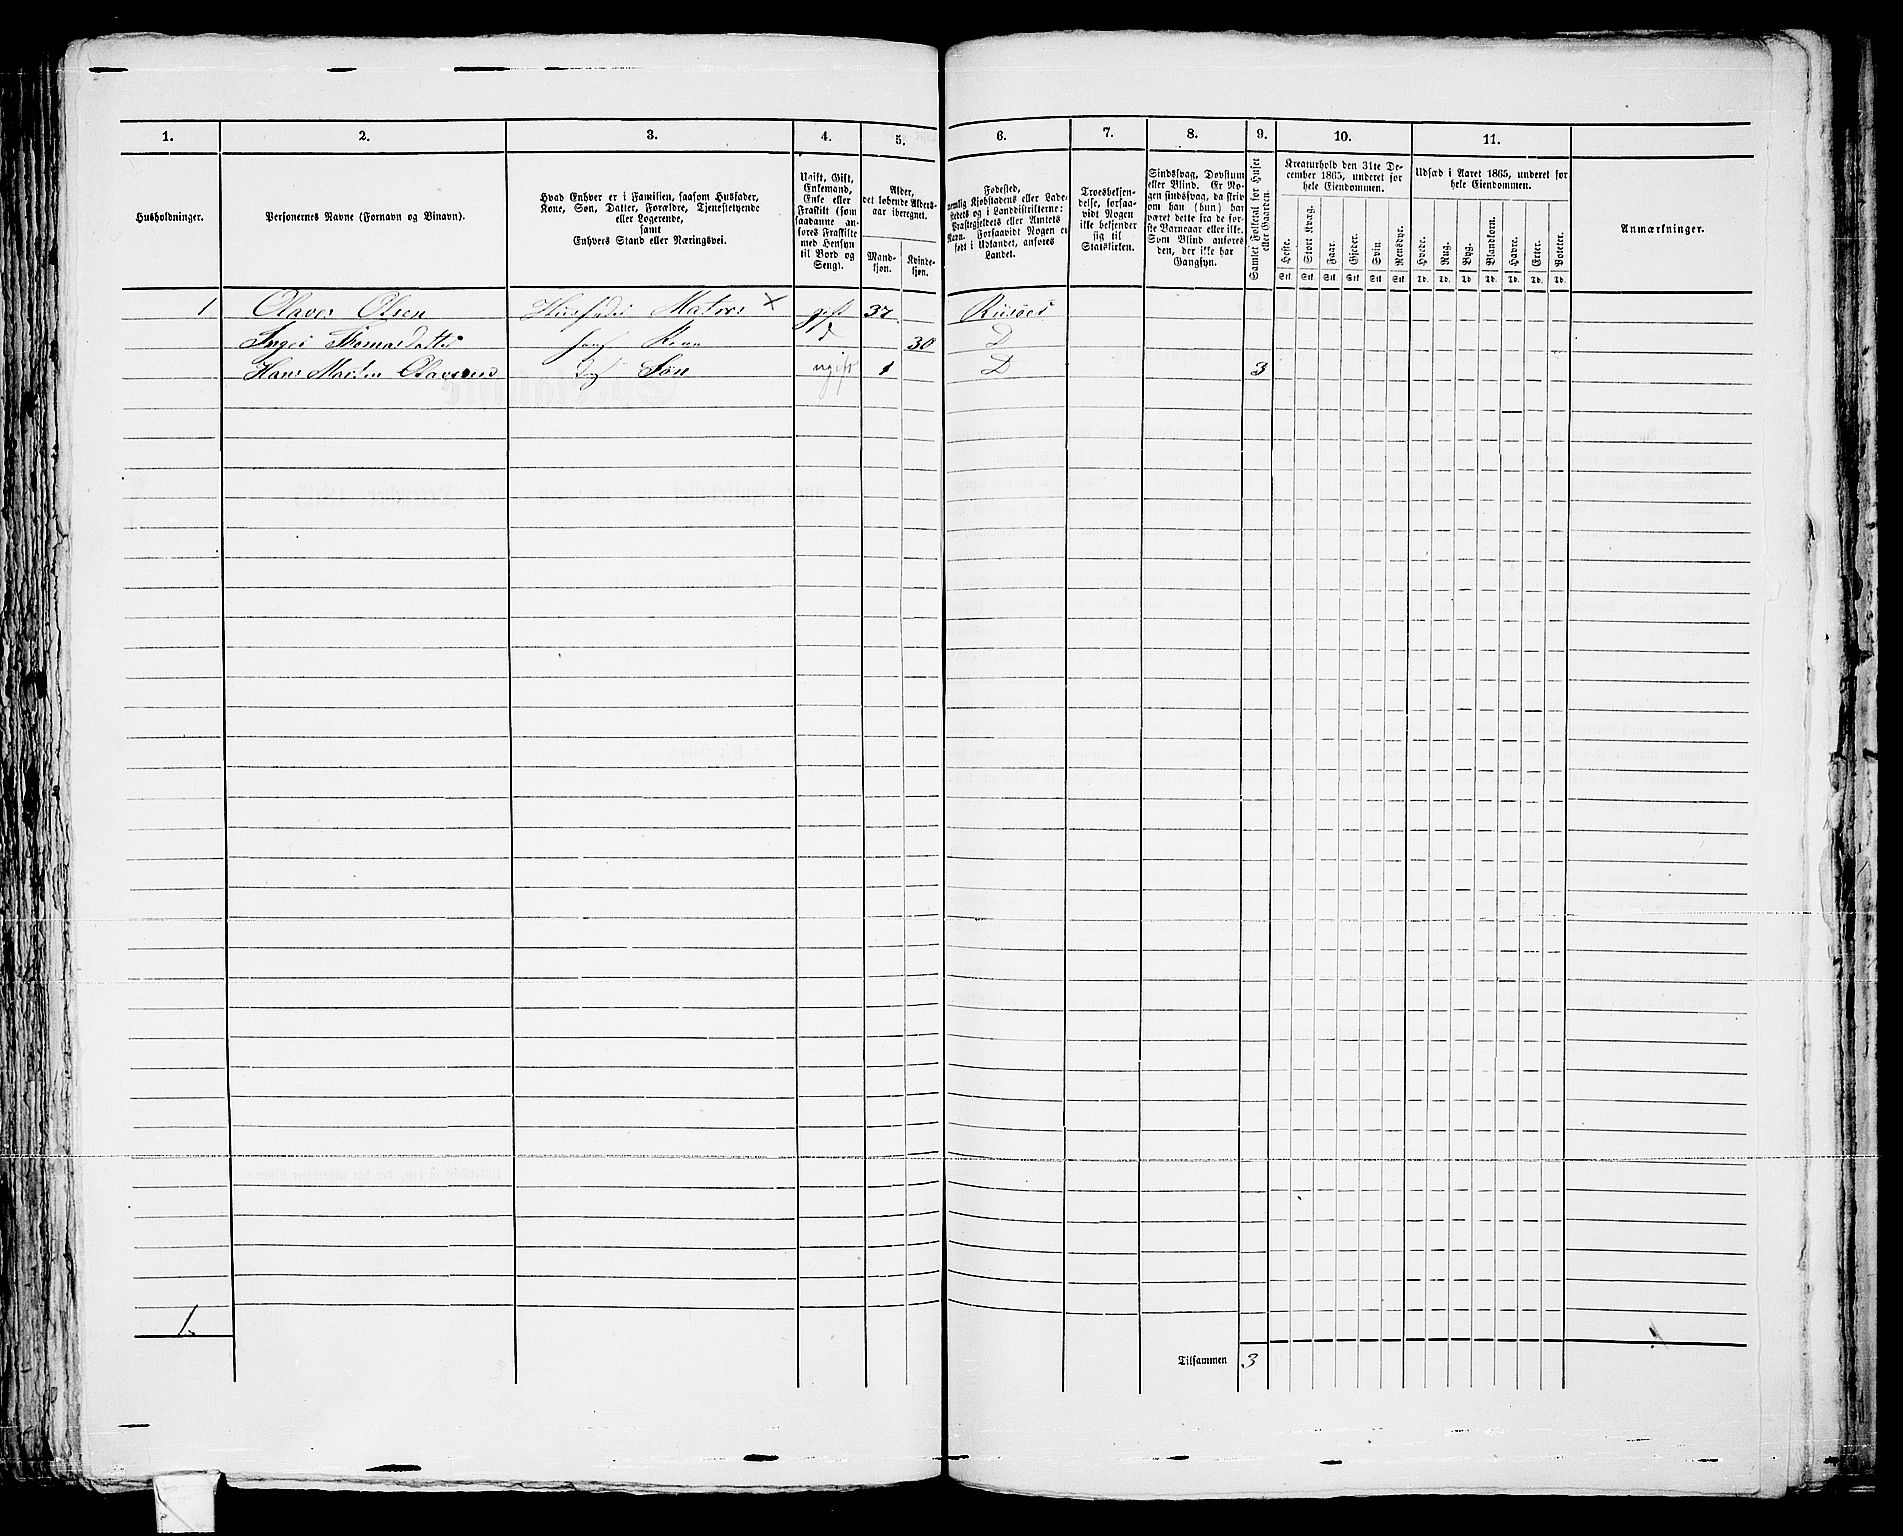 1. 2. 3. 4. 5. 6. 7. 8. 9. 10. 11.
Husholdninger.
Personernes Navne (Fornavn og Binavn).
Hvad Enhver er i Familien, saasom Husfader,
Kone, Søn, Datter, Forældre, Tjenestetyende
eller Logerende,
samt
Enhvers Stand eller Næringsvei.
Ugift, Gift,
Enkemand,
Enke eller
Fraskilt (som
saadanne an-
føres Fraskilte
med Hensyn
til Bord og
Seng).
Alder,
det løbende Alders-
aar iberegnet.
Mand-
kjøn.
Kvinde-
kjøn.
Fødested,
nemlig Kjøbstadens eller Lade-
stedets og i Landdistrikterne:
Præstegjeldets eller Amtets
Navn. Forsaavidt Nogen er
født i Udlandet, anføres
Landet.
Troesbekjen-
delse, forsaa-
vidt Nogen
ikke bekjender
sig til
Statskirken.
Sindssvag, Døvstum
eller Blind. Er No-
gen sindssvag, da skriv
om han (hun) har
været dette fra de før-
ste Barneaar eller ikke.
Som Blind anføres
den, der ikke har
Gangsyn.
Samlet Folketal for Huset
eller Gaarden.
Kreaturhold den 31te De-
cember 1865, underet for
hele Eiendommen.
Heste. Stort Kvæg. Faar. Gjeder. Svin. Rensdyr.
Stk. Stk. Stk. Stk. Stk. Stk.
Udsæd i Aaret 1865, underet for
hele Eiendommen.
Hvede. Rug. Byg. Blandkorn. Havre. Erter. Poteter.
Td. Td. Td. Td. Td. Td. Td.
Anmærkninger.
1 Olaves Olsen Husfader Matros × gift 37 Riisöer
Inger Thomasdatter hans Kone d 30 D
Hans Martin Olavesen des Søn ugift 1 D 3
1
Tilsammen 3